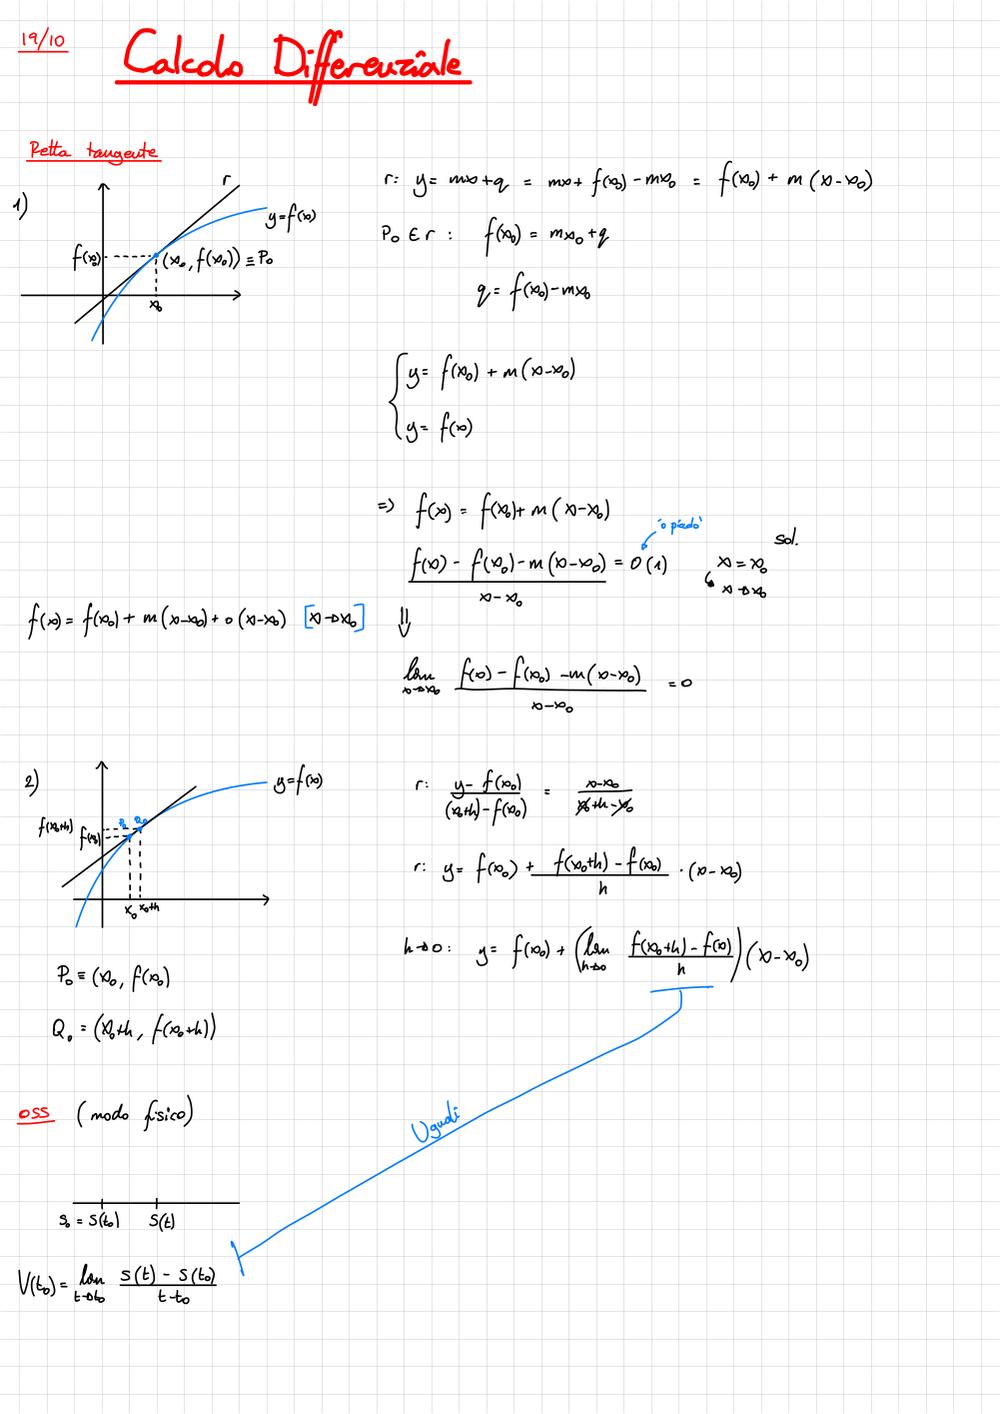 19/10
Calcolo Differenziale
Retta tangente
1)
r
y=f(x)
f(x₀)
(x₀, f(x₀)) ≡ P₀
x₀
r: y = mx+q = mx + f(x₀) - mx₀ = f(x₀) + m (x-x₀)
P₀ ∈ r : f(x₀) = mx₀ + q
q = f(x₀) - mx₀
{ y = f(x₀) + m(x-x₀)
y = f(x)
=> f(x) = f(x₀) + m (x-x₀)
"o piccolo"
sol.
(f(x) - f(x₀) - m(x-x₀))/(x-x₀) = o(1)
x = x₀
x→x₀
f(x) = f(x₀) + m(x-x₀) + o(x-x₀) [x→x₀]
⇓
lim x→x₀ (f(x) - f(x₀) - m(x-x₀))/(x-x₀) = 0
2)
y=f(x)
f(x₀+h)
f(x₀)
P₀ Q₀
x₀ x₀+h
r: (y - f(x₀))/((x₀+h) - f(x₀)) = (x-x₀)/(x₀+h-x₀)
r: y = f(x₀) + (f(x₀+h) - f(x₀))/h · (x-x₀)
h→0: y = f(x₀) + (lim h→0 (f(x₀+h) - f(x))/h) (x-x₀)
P₀ ≡ (x₀, f(x₀))
Q₀ = (x₀+h, f(x₀+h))
oss (modo fisico)
Uguali
s₀ = s(t₀) s(t)
V(t₀) = lim t→t₀ (s(t) - s(t₀))/(t-t₀)